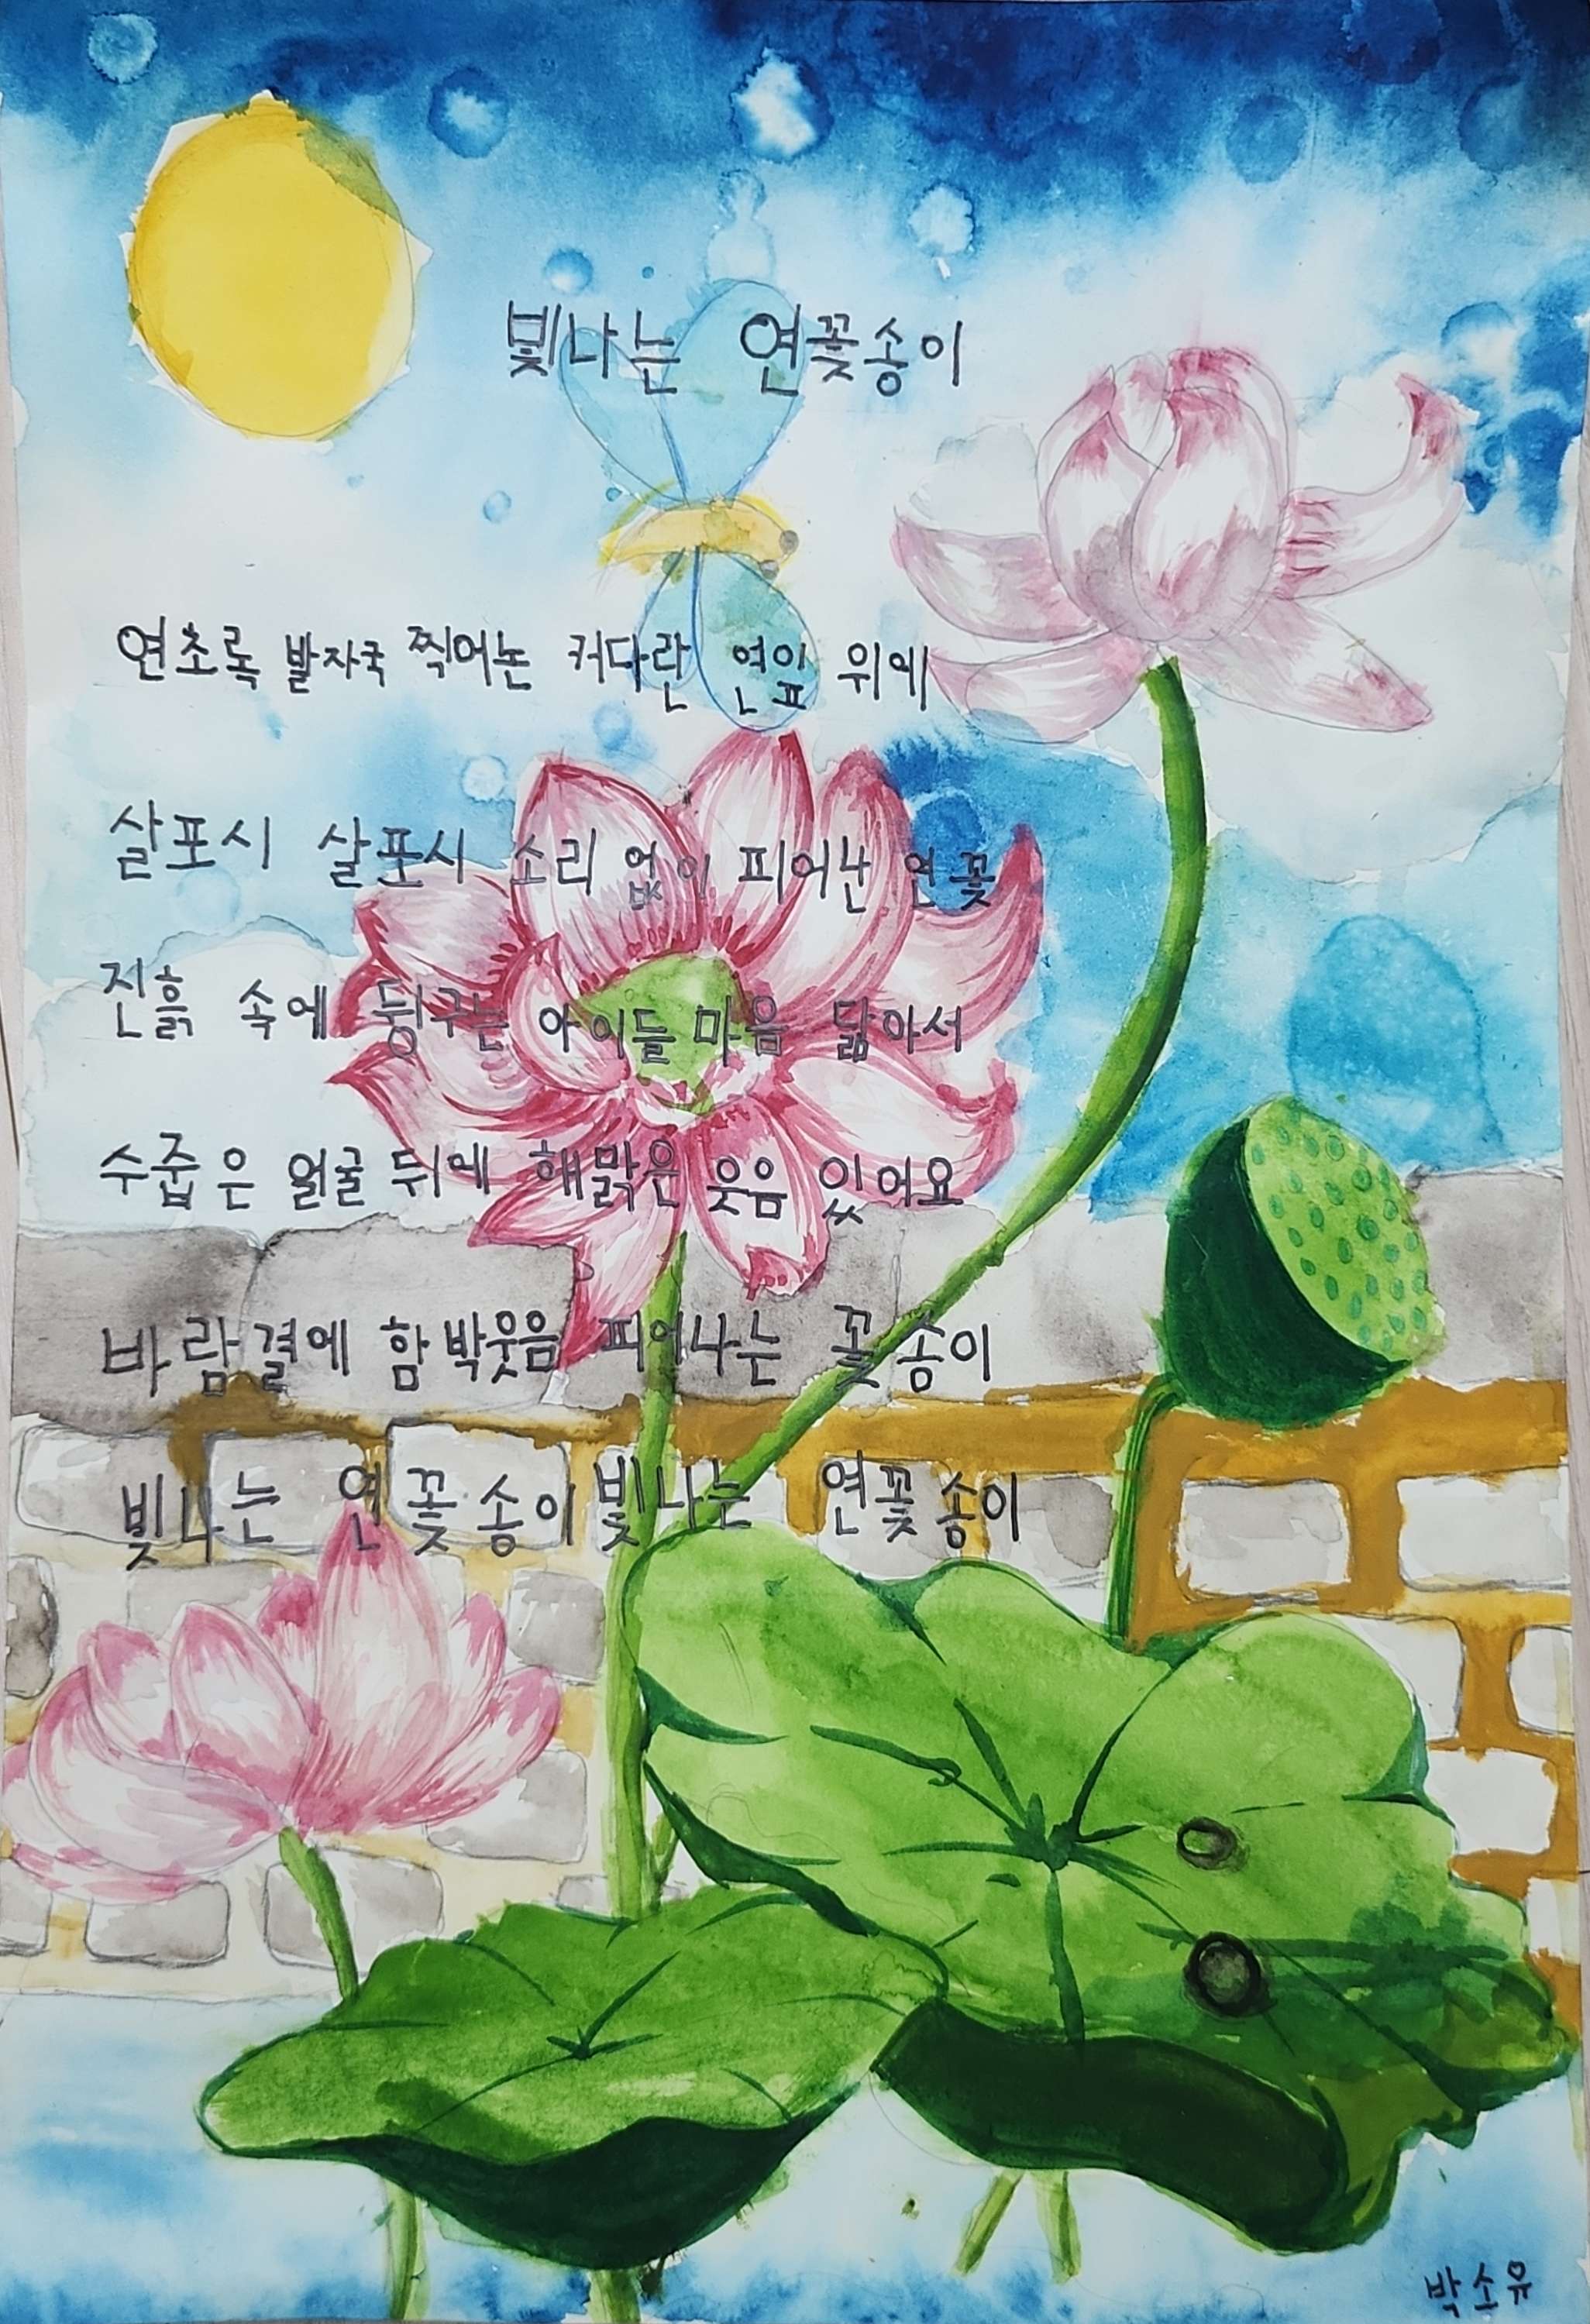 빛나는 연꽃송이
연초록 발자국 찍어논 커다란 연잎 위에
살포시 살포시 소리 없이 피어난 연꽃
진흙 속에 뒹구는 아이들 마음 닮아서
수줍은 얼굴 뒤에 해맑은 웃음 있어요
바람결에 함박웃음 피어나는 꽃송이
빛나는 연꽃송이 빛나는 연꽃송이
박소유